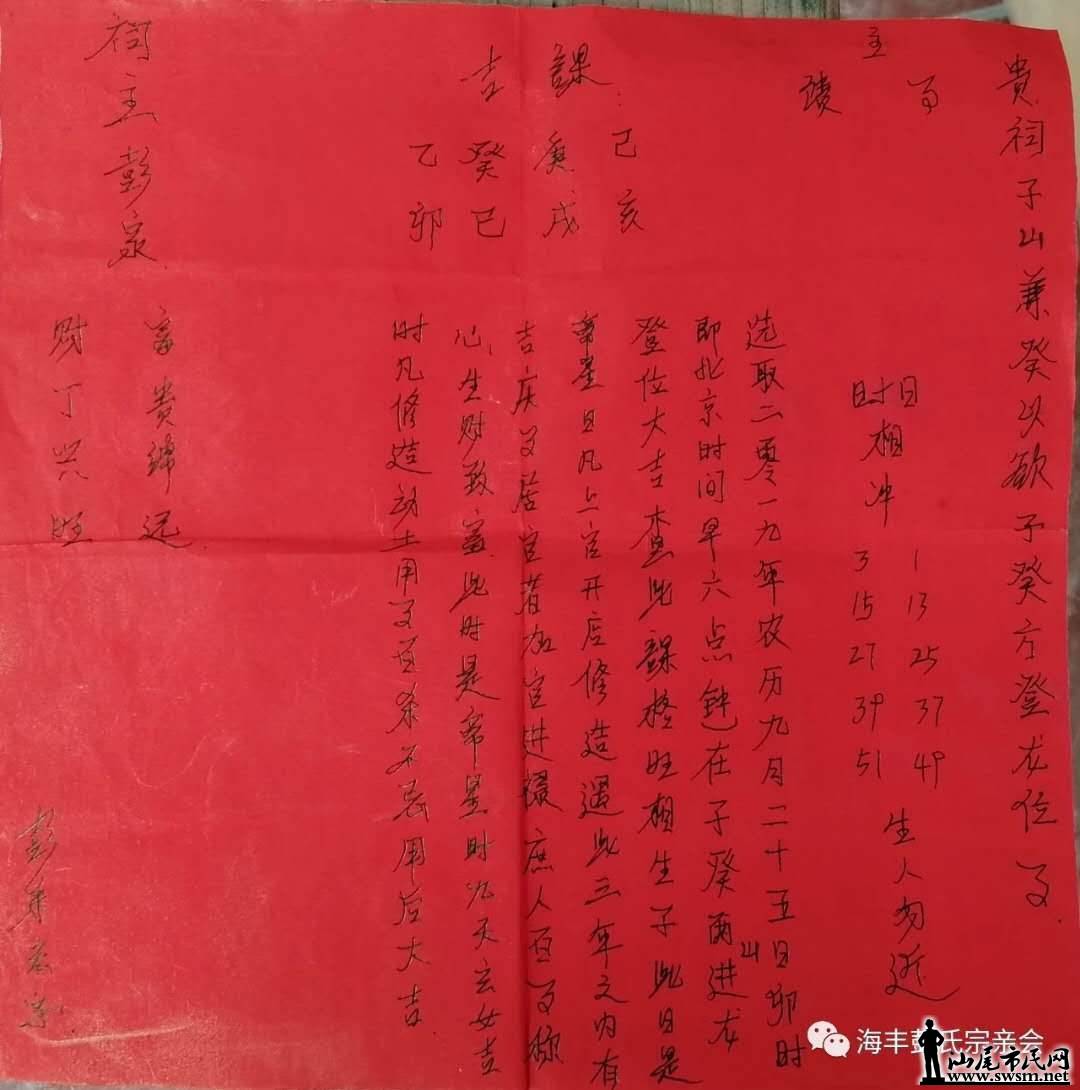 貴祠子山兼癸以敛子癸方登龙位了
主
日时相冲
1 13 25 37 49
3 15 27 39 51
生人勿近
选取二零一九年农历九月二十五日卯时
即北京时间早六点钟在子癸两山进龙
登位大吉查此課格旺相生子此日是
帝星日凡上官开店修造遇此三年之内有
吉庆了居官者加官进禄庶人百了
心生财致富此时是帝星时九天玄女吉
时凡修造动土用了百杀不忌用后大吉
吉課
己亥
庚戌
癸巳
乙卯
祠主彭泉
富贵绵远
财丁兴旺
海丰彭氏宗亲会
汕尾市民网
www.swsm.net